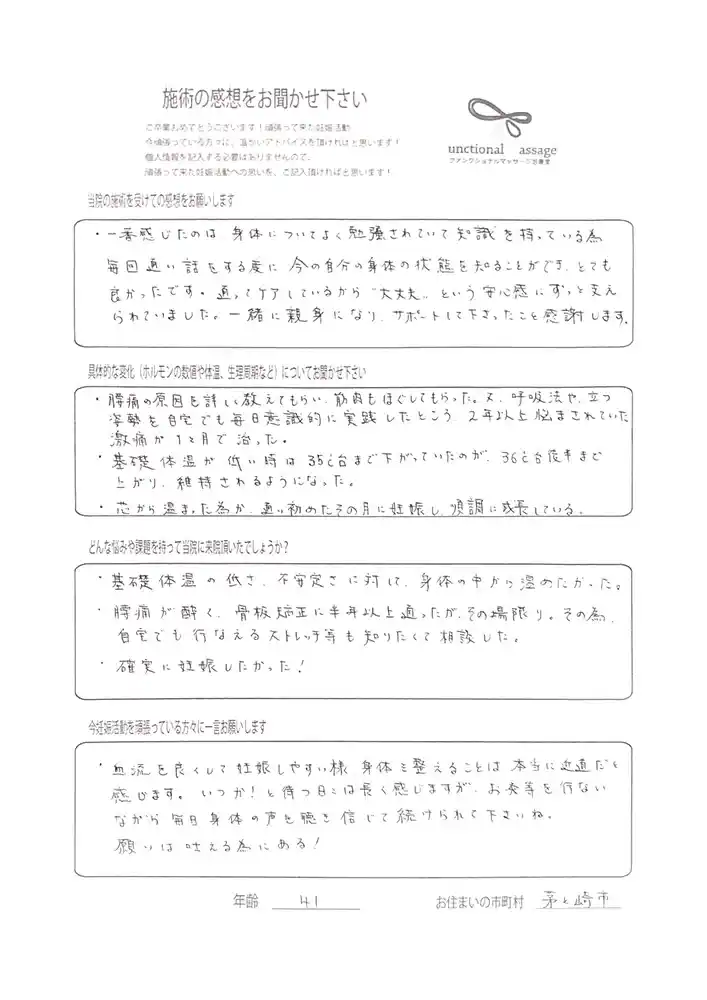 施術の感想をお聞かせ下さい
ご卒業おめでとうございます!頑張って来た妊娠活動
今頑張っている方々に、温かいアドバイスを頂ければと思います!
個人情報を記入する必要はありませんので、
頑張って来た妊娠活動への思いを、ご記入頂ければと思います!
unctional assage
ファンクショナルマッサージ治療室
当院の施術を受けての感想をお願いします
・一番感じたのは 身体についてよく勉強されていて知識を持っている為
毎回通い話をする度に 今の自分の身体の状態を知ることができ、とても
良かったです。通ってケアしているから"大丈夫"という安心感にずっと支え
られていました。一緒に親身になり、サポートして下さったこと感謝します。
具体的な変化(ホルモンの数値や体温、生理周期など)についてお聞かせ下さい
・腰痛の原因を詳しく教えてもらい、筋肉もほぐしてもらった。又、呼吸法や、立つ
姿勢を自宅でも毎日意識的に実践したところ、2年以上悩まされていた
激痛が1ヶ月で治った。
・基礎体温が低い時は35℃台まで下がっていたのが、36℃台後半まで
上がり、維持されるようになった。
・芯から温まった為か、通い初めたその月に妊娠し、順調に成長している。
どんな悩みや課題を持って当院に来院頂いたでしょうか?
・基礎体温の低さ、不安定さに対して、身体の中から温めたかった。
・腰痛が酷く、骨板矯正に半年以上通ったが、その場限り。その為、
自宅でも行なえるストレッチ等も知りたくて相談した。
・確実に妊娠したかった!
今妊娠活動を頑張っている方々に一言お願いします
・血流を良くして妊娠しやすい様 身体を整えることは本当に近道だと
感じます。いつか!と待つ日々は長く感じますが、お灸等を行ない
ながら毎日身体の声を聴き信じて続けられて下さいね。
願いは叶える為にある!
年齢 41
お住まいの市町村 茅ヶ崎市